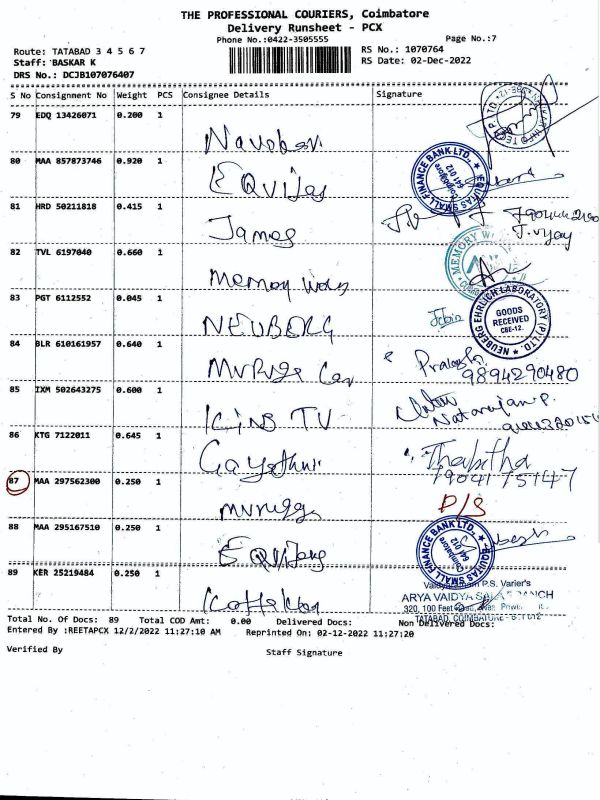 THE PROFESSIONAL COURIERS, Coimbatore
Delivery Runsheet - PCX
Phone No.:0422-3505555
Page No.:7
Route: TATABAD 3 4 5 6 7
RS No.: 1070764
Staff: BASKAR K
RS Date: 02-Dec-2022
DRS No.: DCJB107076407
S No Consignment No Weight PCS Consignee Details Signature
79 EDQ 13426071 0.200 1
80 MAA 857873746 0.920 1
EQUITAS SMALL FINANCE BANK LTD., Coimbatore 641 012
81 HRD 50211818 0.415 1
James
J. vijay
82 TVL 6197040 0.660 1
MEMORY
83 PGT 6112552 0.045 1
NEUBERG
NEUBERG EHRLICH LABORATORY (P) LTD. GOODS RECEIVED CBE-12.
84 BLR 610161957 0.640 1
9894290480
85 IXM 502643275 0.600 1
KING TV
Natarajan P.
86 KTG 7122011 0.645 1
Gayathri
Thabitha
87 MAA 297562300 0.250 1
D/S
88 MAA 295167510 0.250 1
EQUITAS SMALL FINANCE BANK LTD., Coimbatore 641 012
89 KER 25219484 0.250 1
P.S. Varier's
ARYA VAIDYA
320, 100 Feet
TATABAD, COIMBATORE
Total No. Of Docs: 89 Total COD Amt: 0.00 Delivered Docs: Non Delivered Docs:
Entered By :REETAPCX 12/2/2022 11:27:10 AM Reprinted On: 02-12-2022 11:27:20
Verified By Staff Signature